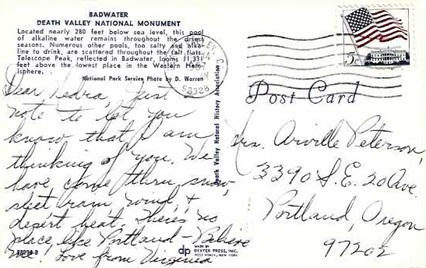 BADWATER
DEATH VALLEY NATIONAL MONUMENT
Located nearly 280 feet below sea level, this pool
of alkaline water remains throughout the driest
seasons. Numerous other pools, too salty and alka-
line to drink, are scattered throughout the salt flats.
Telescope Peak, reflected in Badwater, looms 11,331
feet above the lowest place in the Western Hem-
isphere.
National Park Service Photo by D. Warren
Dear Nedra, Just
note to let you
know that I am
thinking of you. We
have come thru snow
sleet rain wind &
desert heat. There's no
place like Portland - Believe
me. Love from Virginia
Death Valley Natural History Association
MADE BY
DEXTER PRESS, INC.
WEST NYACK, NEW YORK
dp
5c
Post Card
Mrs. Arville Peterson,
3390 S.E. 20 Ave.
Portland, Oregon
97202